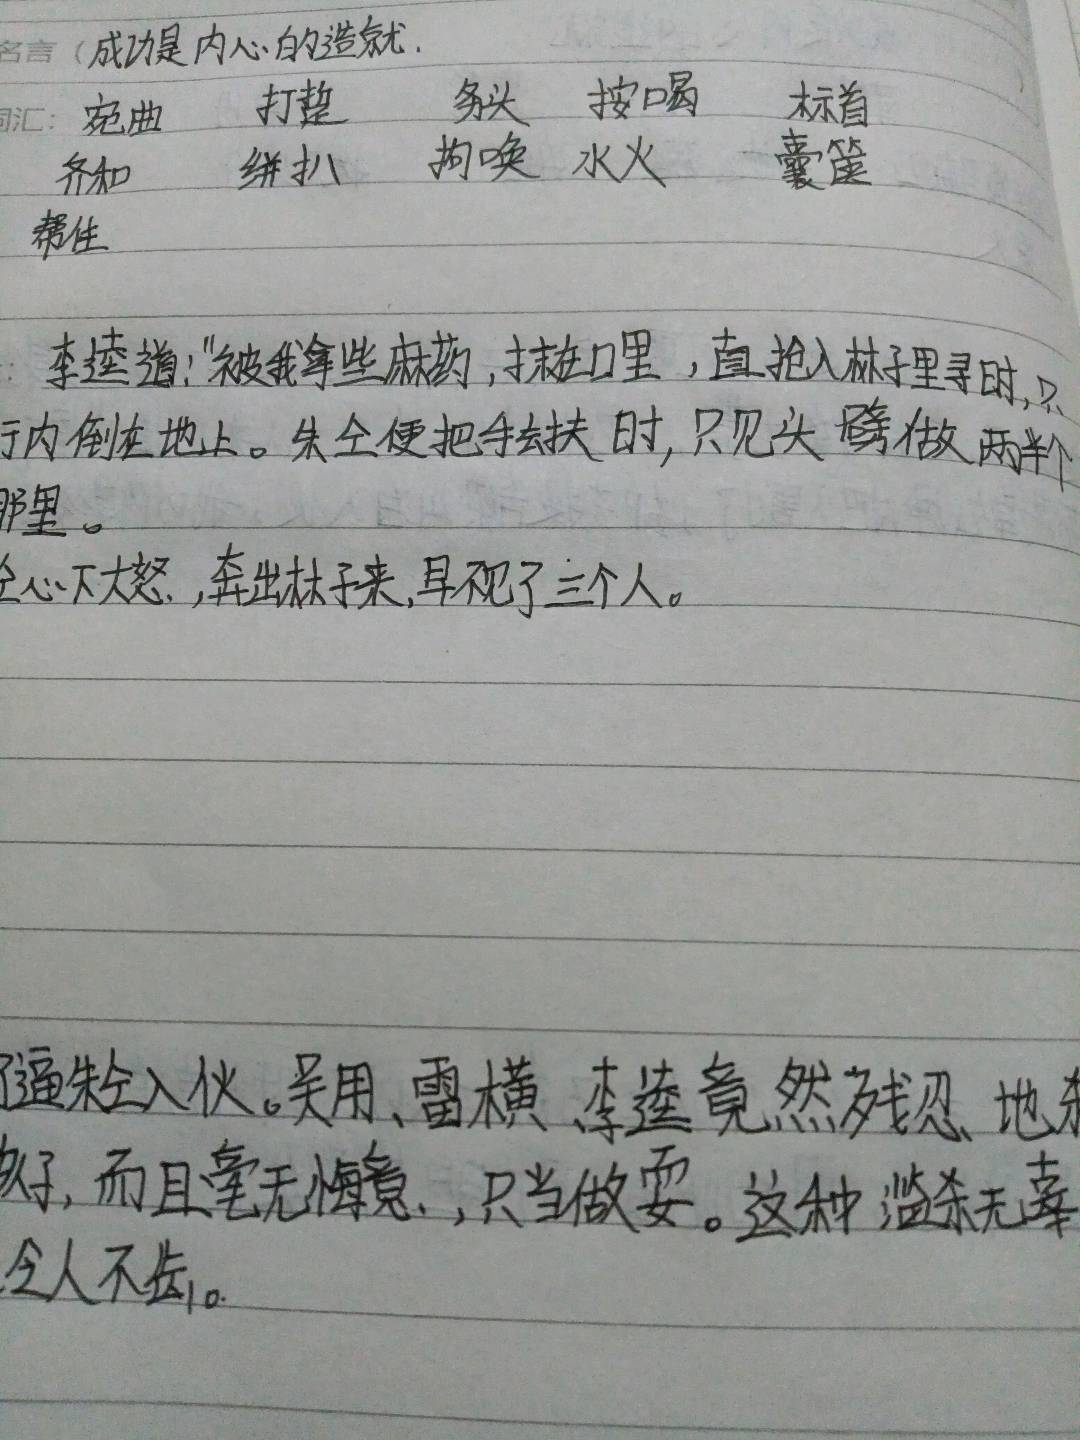 名言(成功是内心的造就.
词汇: 宛曲 打踅 务头 按喝 标首
齐和 绷扒 拘唤 水火 囊箧
帮住
: 李逵道:"被我拿些麻药,抹在口里,直抢入林子里寻时,只
行内倒在地上。朱仝便把手去扶时,只见头劈做两半个
那里。
仝心下大怒,奔出林子来,早不见了三个人。
逼朱仝入伙。吴用、雷横、李逵竟然残忍地杀
孩子,而且毫无悔意,只当做耍。这种滥杀无辜
令人不齿。